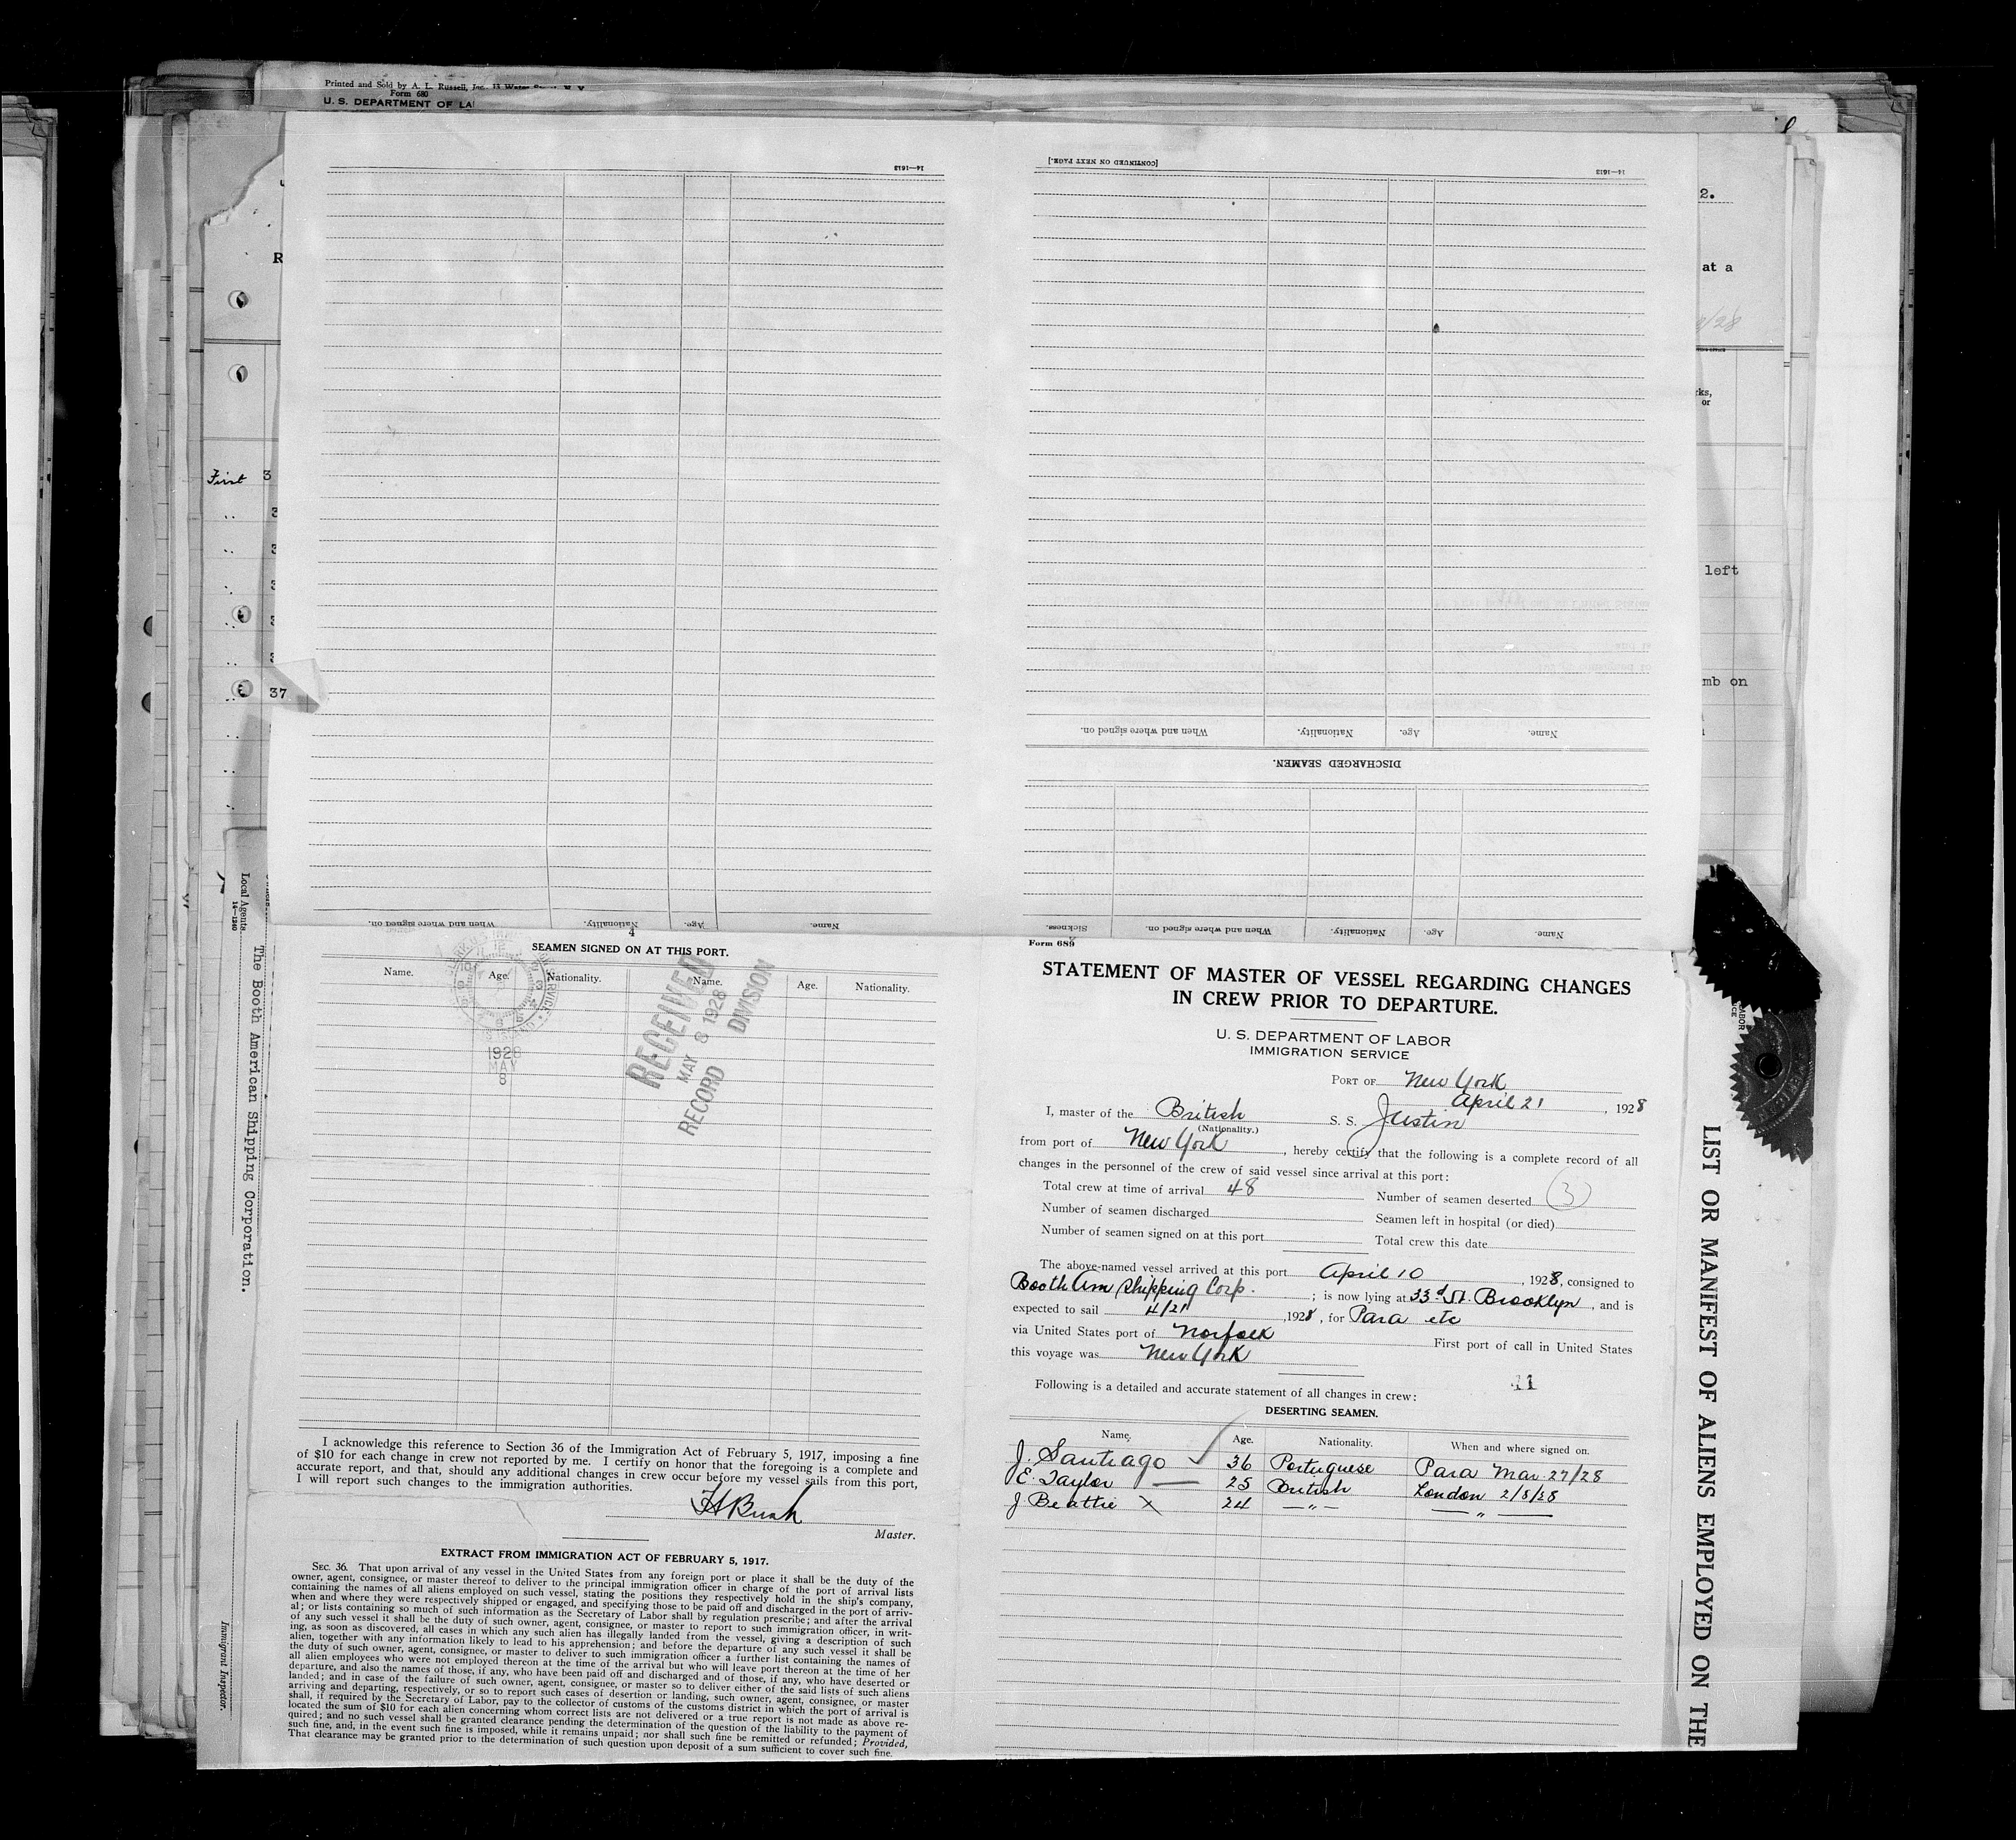 Printed and Sold by A. L. Russell, Inc.
Form 680
U. S. DEPARTMENT OF LA
14—1613
[CONTINUED ON NEXT PAGE.]
14—1613
2.
R
at a
/28
rks,
or
First 3
left
37
mb on
When and where signed on. Nationality. Age. Name.
DISCHARGED SEAMEN.
When and where signed on. Nationality. Age. Name.
Sickness. When and where signed on. Nationality. Age. Name.
Local Agents.
14—1240
The Booth American Shipping Corporation.
Immigrant Inspector.
4
SEAMEN SIGNED ON AT THIS PORT.
Name. Age. Nationality. Name. Age. Nationality.
1928
MAY
8
RECEIVED
MAY 8 1928
RECORD DIVISION
I acknowledge this reference to Section 36 of the Immigration Act of February 5, 1917, imposing a fine
of $10 for each change in crew not reported by me. I certify on honor that the foregoing is a complete and
accurate report, and that, should any additional changes in crew occur before my vessel sails from this port,
I will report such changes to the immigration authorities.
Master.
EXTRACT FROM IMMIGRATION ACT OF FEBRUARY 5, 1917.
SEC. 36. That upon arrival of any vessel in the United States from any foreign port or place it shall be the duty of the
owner, agent, consignee, or master thereof to deliver to the principal immigration officer in charge of the port of arrival lists
containing the names of all aliens employed on such vessel, stating the positions they respectively hold in the ship's company,
when and where they were respectively shipped or engaged, and specifying those to be paid off and discharged in the port of arriv-
al; or lists containing so much of such information as the Secretary of Labor shall by regulation prescribe; and after the arrival
of any such vessel it shall be the duty of such owner, agent, consignee, or master to report to such immigration officer, in writ-
ing, as soon as discovered, all cases in which any such alien has illegally landed from the vessel, giving a description of such
alien, together with any information likely to lead to his apprehension; and before the departure of any such vessel it shall be
the duty of such owner, agent, consignee, or master to deliver to such immigration officer a further list containing the names of
all alien employees who were not employed thereon at the time of the arrival but who will leave port thereon at the time of her
departure, and also the names of those, if any, who have been paid off and discharged and of those, if any, who have deserted or
landed; and in case of the failure of such owner, agent, consignee, or master so to deliver either of the said lists of such aliens
arriving and departing, respectively, or so to report such cases of desertion or landing, such owner, agent, consignee, or master
shall, if required by the Secretary of Labor, pay to the collector of customs of the customs district in which the port of arrival is
located the sum of $10 for each alien concerning whom correct lists are not delivered or a true report is not made as above re-
quired; and no such vessel shall be granted clearance pending the determination of the question of the liability to the payment of
such fine, and, in the event such fine is imposed, while it remains unpaid; nor shall such fine be remitted or refunded; Provided,
That clearance may be granted prior to the determination of such question upon deposit of a sum sufficient to cover such fine.
Form 689
STATEMENT OF MASTER OF VESSEL REGARDING CHANGES
IN CREW PRIOR TO DEPARTURE.
U. S. DEPARTMENT OF LABOR
IMMIGRATION SERVICE
PORT OF New York
April 21, 1928
I, master of the British S. S. Justin
(Nationality.)
from port of New York, hereby certify that the following is a complete record of all
changes in the personnel of the crew of said vessel since arrival at this port:
Total crew at time of arrival 48 Number of seamen deserted 3
Number of seamen discharged Seamen left in hospital (or died)
Number of seamen signed on at this port Total crew this date
The above-named vessel arrived at this port April 10, 1928, consigned to
Booth Am Shipping Corp.; is now lying at 33d St. Brooklyn, and is
expected to sail 4/21, 1928, for Para etc
via United States port of Norfolk First port of call in United States
this voyage was New York
Following is a detailed and accurate statement of all changes in crew: 41
DESERTING SEAMEN.
Name. Age. Nationality. When and where signed on.
J. Santiago 36 Portuguese Para Mar 27/28
E. Taylor — 25 British London 2/8/28
J Beattie X 24 —"— —"—
LIST OR MANIFEST OF ALIENS EMPLOYED ON THE